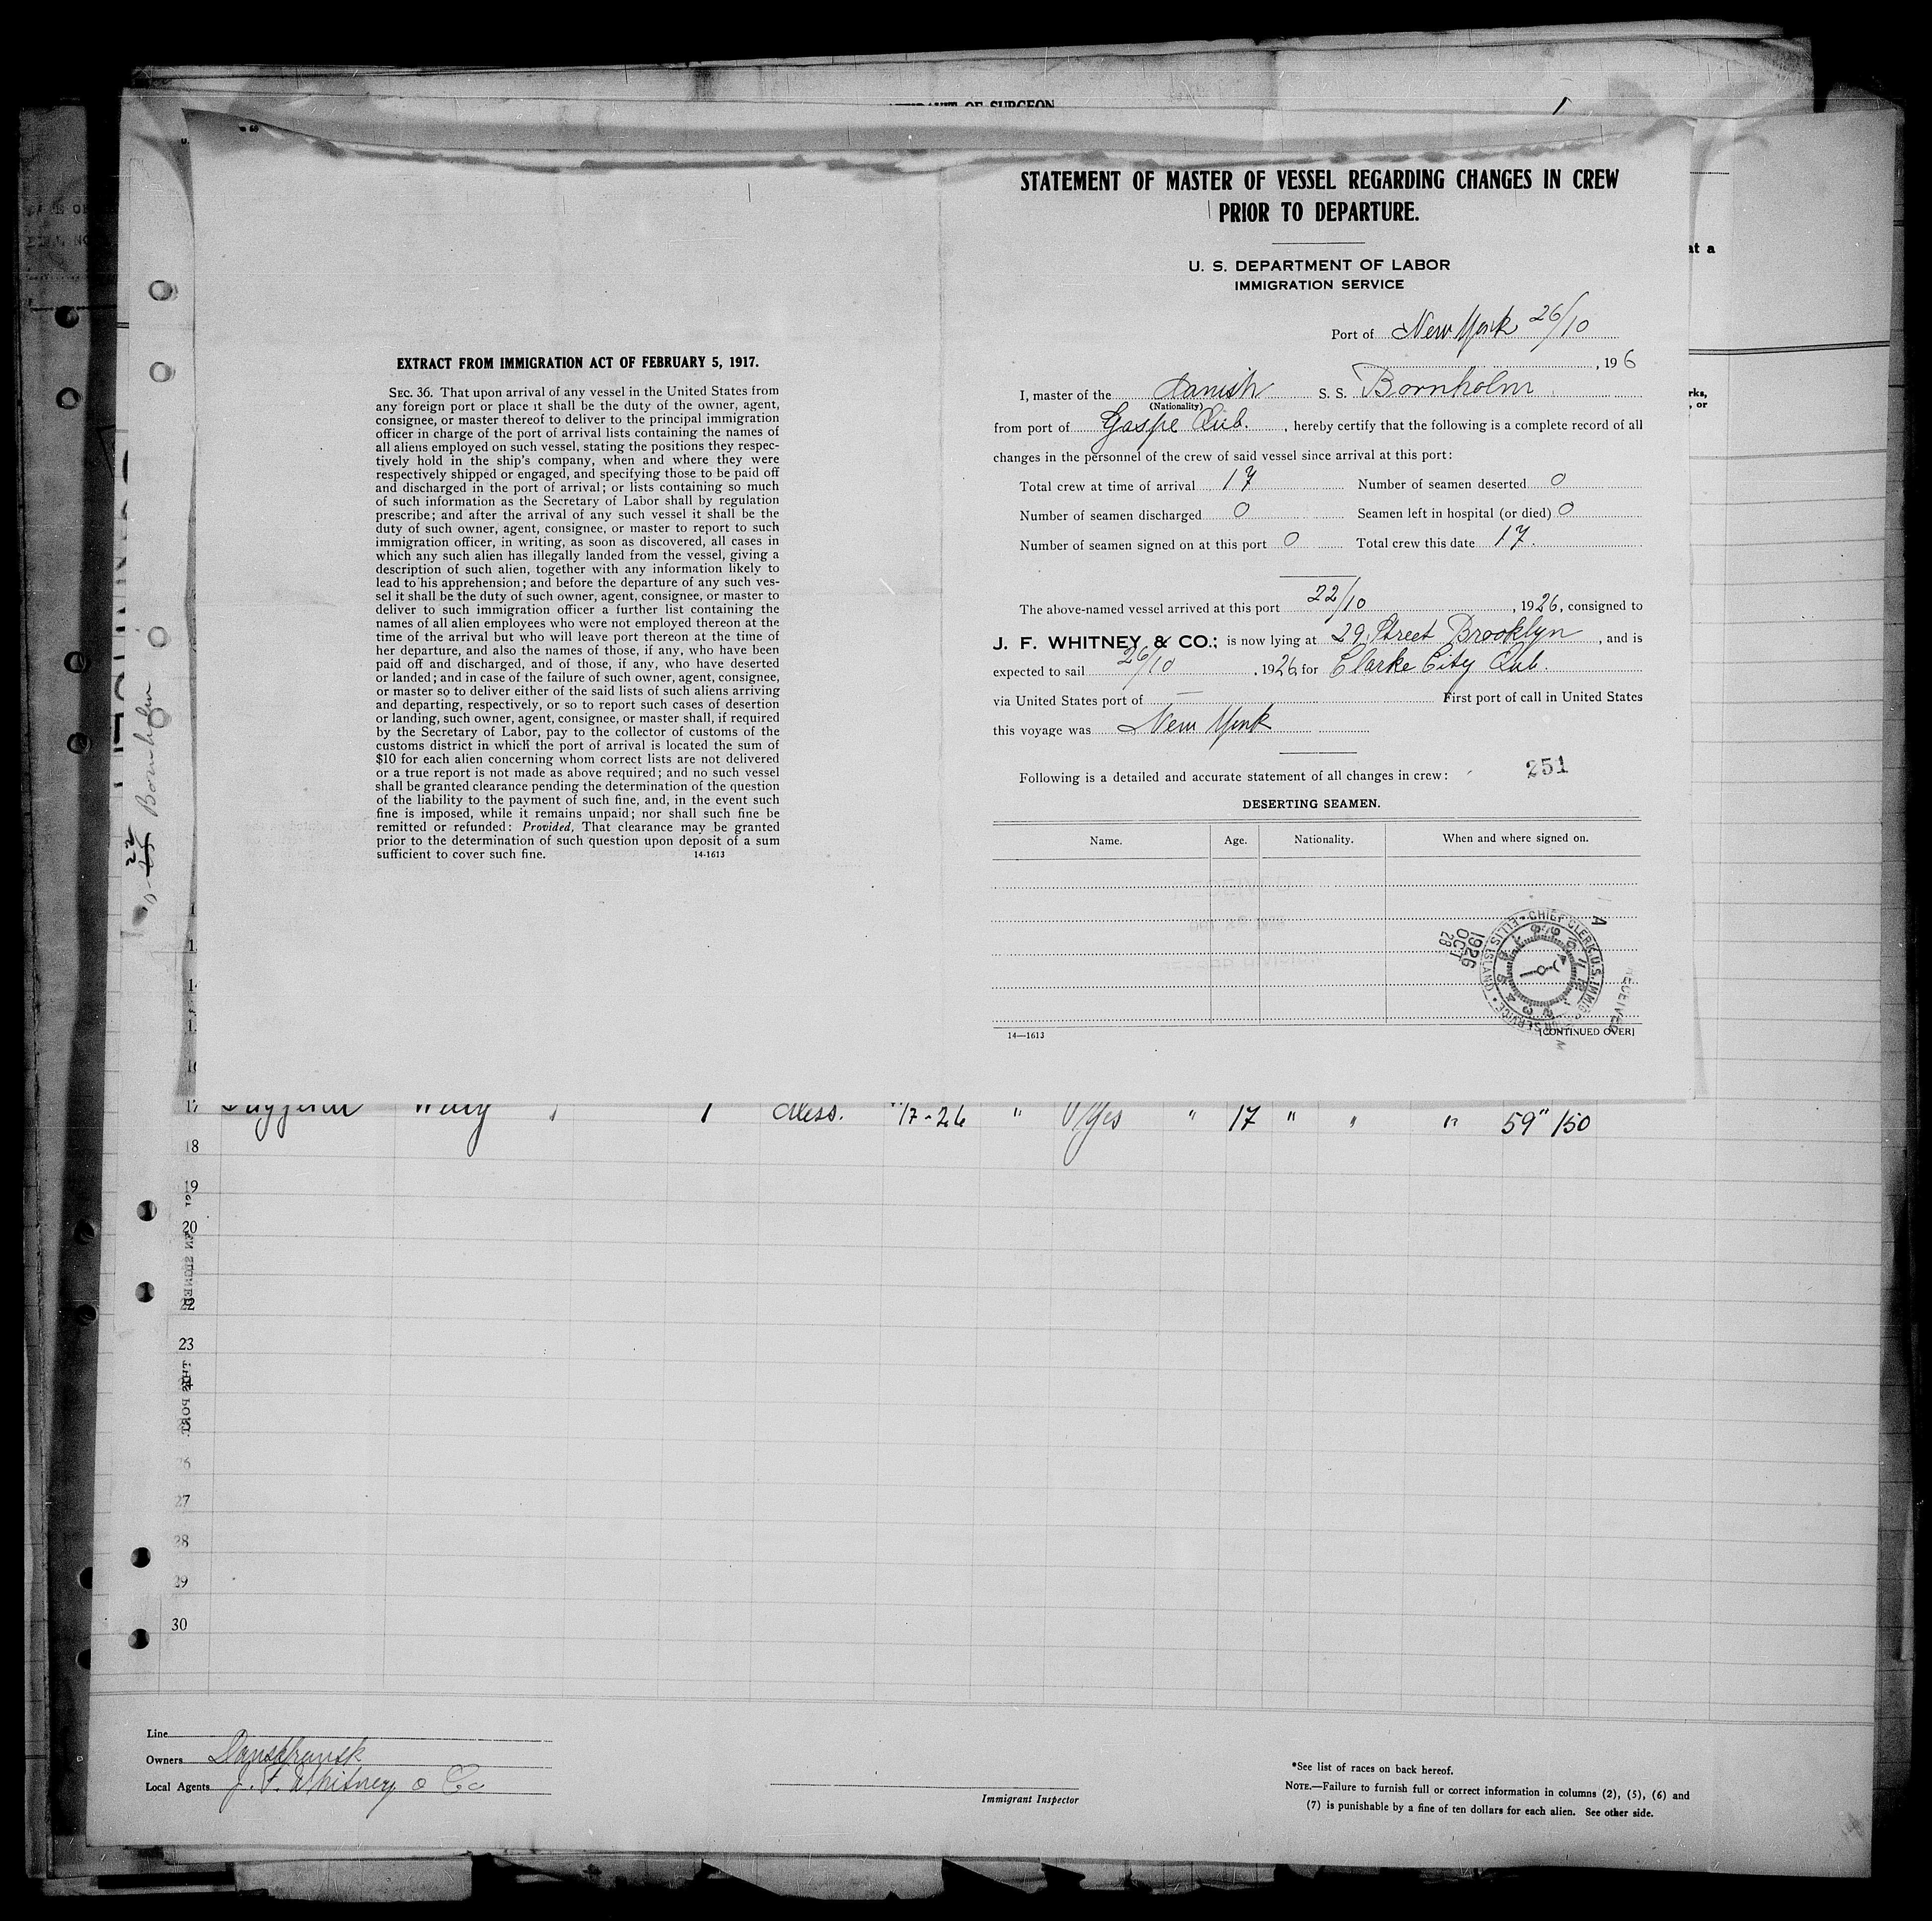 AFFIDAVIT OF SURGEON
at a
rks,
, or
EXTRACT FROM IMMIGRATION ACT OF FEBRUARY 5, 1917.
SEC. 36. That upon arrival of any vessel in the United States from
any foreign port or place it shall be the duty of the owner, agent,
consignee, or master thereof to deliver to the principal immigration
officer in charge of the port of arrival lists containing the names of
all aliens employed on such vessel, stating the positions they respec-
tively hold in the ship's company, when and where they were
respectively shipped or engaged, and specifying those to be paid off
and discharged in the port of arrival; or lists containing so much
of such information as the Secretary of Labor shall by regulation
prescribe; and after the arrival of any such vessel it shall be the
duty of such owner, agent, consignee, or master to report to such
immigration officer, in writing, as soon as discovered, all cases in
which any such alien has illegally landed from the vessel, giving a
description of such alien, together with any information likely to
lead to his apprehension; and before the departure of any such ves-
sel it shall be the duty of such owner, agent, consignee, or master to
deliver to such immigration officer a further list containing the
names of all alien employees who were not employed thereon at the
time of the arrival but who will leave port thereon at the time of
her departure, and also the names of those, if any, who have been
paid off and discharged, and of those, if any, who have deserted
or landed; and in case of the failure of such owner, agent, consignee,
or master so to deliver either of the said lists of such aliens arriving
and departing, respectively, or so to report such cases of desertion
or landing, such owner, agent, consignee, or master shall, if required
by the Secretary of Labor, pay to the collector of customs of the
customs district in which the port of arrival is located the sum of
$10 for each alien concerning whom correct lists are not delivered
or a true report is not made as above required; and no such vessel
shall be granted clearance pending the determination of the question
of the liability to the payment of such fine, and, in the event such
fine is imposed, while it remains unpaid; nor shall such fine be
remitted or refunded: Provided, That clearance may be granted
prior to the determination of such question upon deposit of a sum
sufficient to cover such fine. 14-1613
STATEMENT OF MASTER OF VESSEL REGARDING CHANGES IN CREW
PRIOR TO DEPARTURE.
U. S. DEPARTMENT OF LABOR
IMMIGRATION SERVICE
Port of New York 26/10
, 19 6
I, master of the Danish S. S. Bornholm
(Nationality)
from port of Gaspe Qub. , hereby certify that the following is a complete record of all
changes in the personnel of the crew of said vessel since arrival at this port:
Total crew at time of arrival 17 Number of seamen deserted 0
Number of seamen discharged 0 Seamen left in hospital (or died) 0
Number of seamen signed on at this port 0 Total crew this date 17.
The above-named vessel arrived at this port 22/10 , 1926, consigned to
J. F. WHITNEY & CO.; is now lying at 29 Street Brooklyn , and is
expected to sail 26/10 , 1926, for Clarke City Qub.
via United States port of — First port of call in United States
this voyage was New York
Following is a detailed and accurate statement of all changes in crew: 251
DESERTING SEAMEN.
Name. Age. Nationality. When and where signed on.
1926 OCT 28
CHIEF CLERK U.S. IMMIGRATION SERVICE ELLIS ISLAND
RECEIVED
14—1613 [CONTINUED OVER]
22
Bornholm
17 Willy 1 Mess. /7-26 " Yes " 17 " " " 59" 150
18
19
20
23
26
27
28
29
30
Line
Owners Danskfransk
Local Agents J. F. Whitney & Co
Immigrant Inspector
*See list of races on back hereof.
NOTE.—Failure to furnish full or correct information in columns (2), (5), (6) and
(7) is punishable by a fine of ten dollars for each alien. See other side.